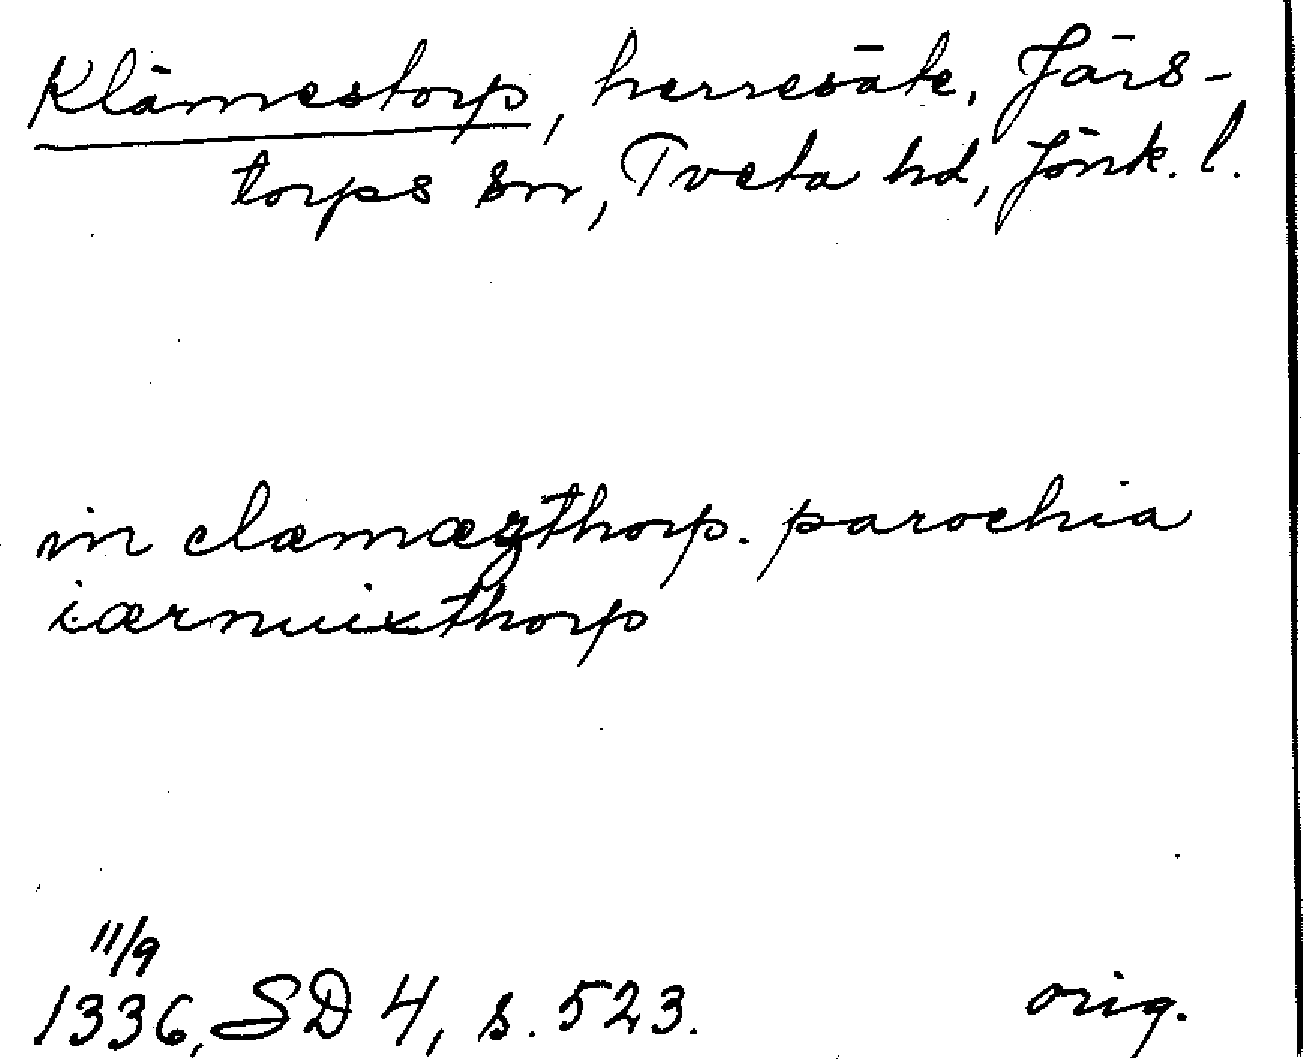 Klämestorp, herresäte, Järs-
torps sn, Tveta hd, Jönk. l.
in clæmæzthorp. parochia
iærnuixthorp
11/9
1336, SD 4, s. 523. orig.